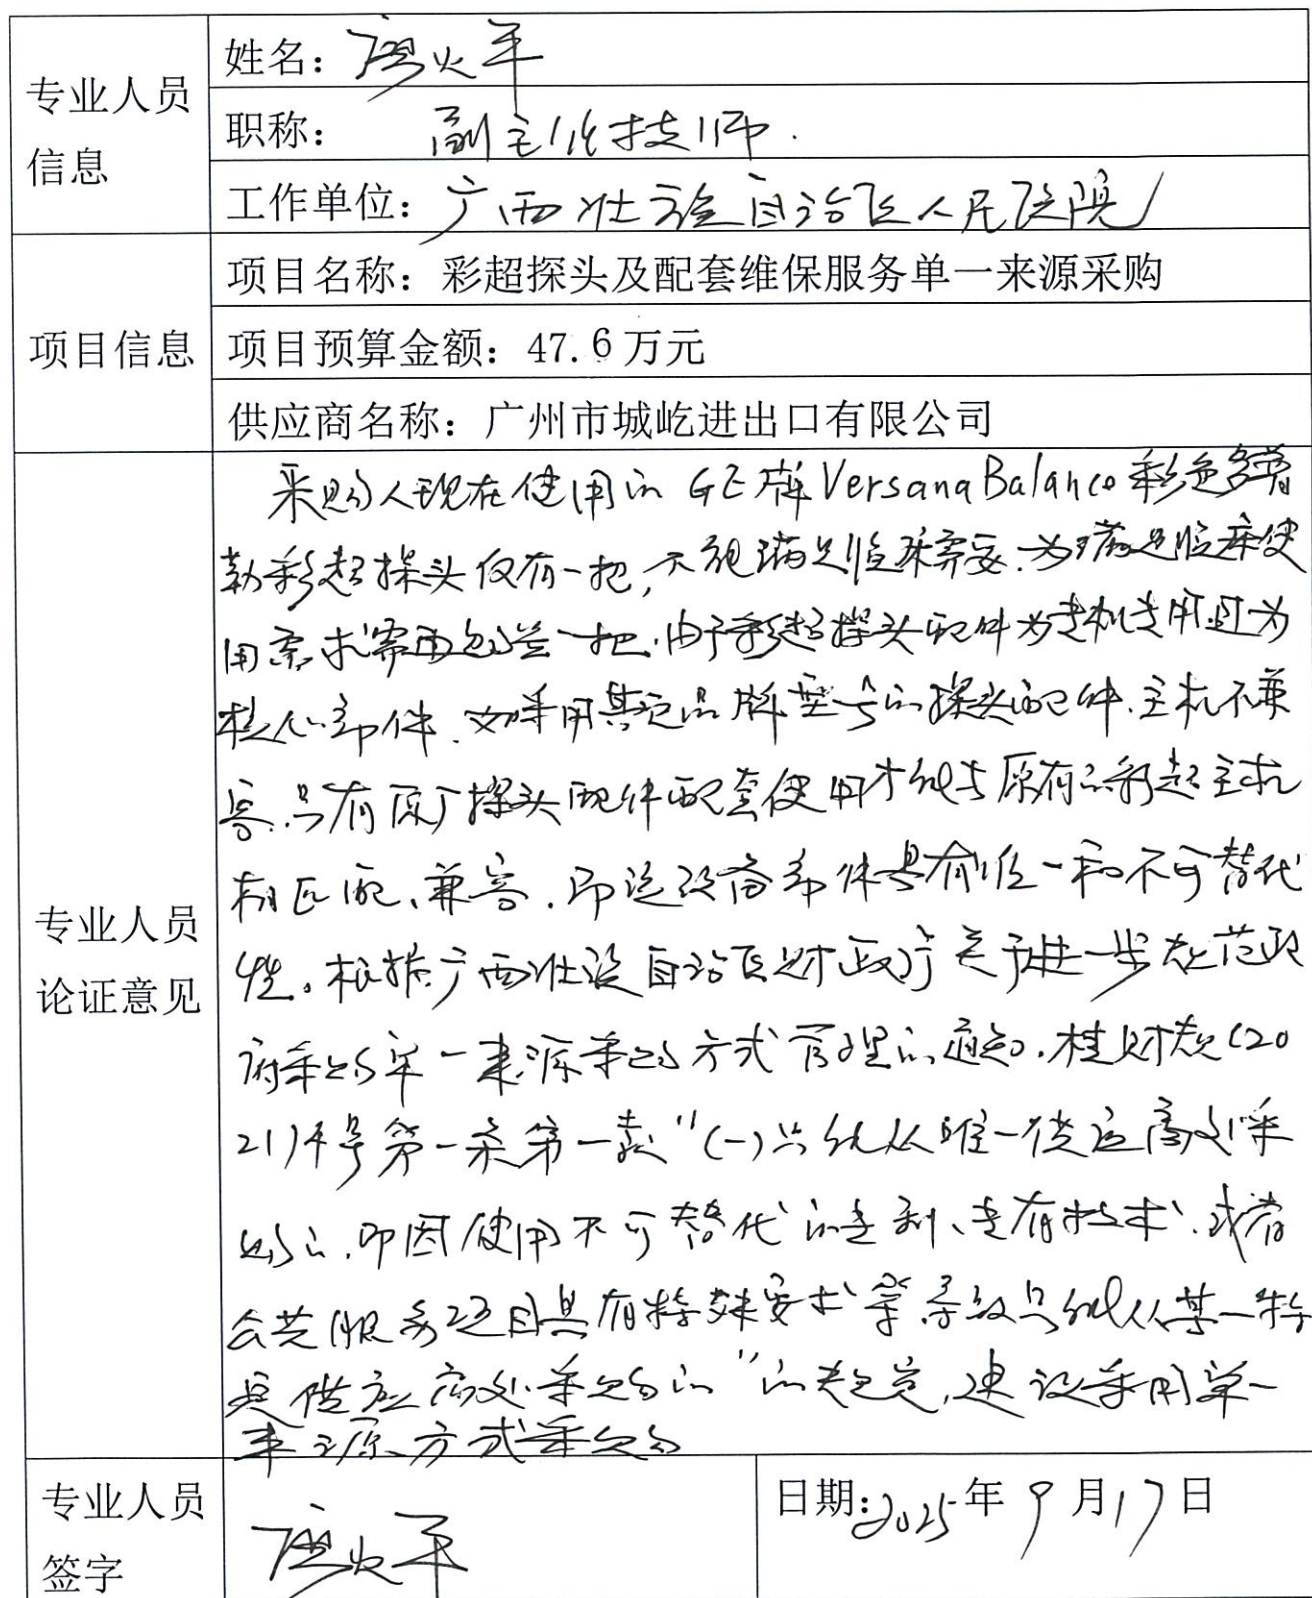 专业人员信息
姓名：廖火平
职称：副主任技师.
工作单位：广西壮族自治区人民医院
项目信息
项目名称：彩超探头及配套维保服务单一来源采购
项目预算金额：47.6万元
供应商名称：广州市城屹进出口有限公司
专业人员论证意见
采购人现在使用的GE牌VersanaBalance彩色多普
勒彩超探头仅有一把，不能满足临床需要.为了满足临床使
用需求需再包一把.由于彩超探头配件为专机专用且为
核心部件.如采用其它品牌型号的探头配件.主机不兼
容.只有原厂探头配件配套使用才能与原有的彩超主机
相匹配、兼容.即该设备部件具有唯一和不可替代
性。根据广西壮族自治区财政厅关于进一步规范政
府采购单一来源采购方式管理的通知.桂财规(20
21)4号第一条第一款“(一)只能从唯一供应商处采
购的.即因使用不可替代的专利、专有技术、或者
公共服务项目具有特殊要求等.导致只能从某一特
定供应商处采购的”的规定，建议采用单一
来源方式采购
专业人员签字
廖火平
日期:2025年9月17日